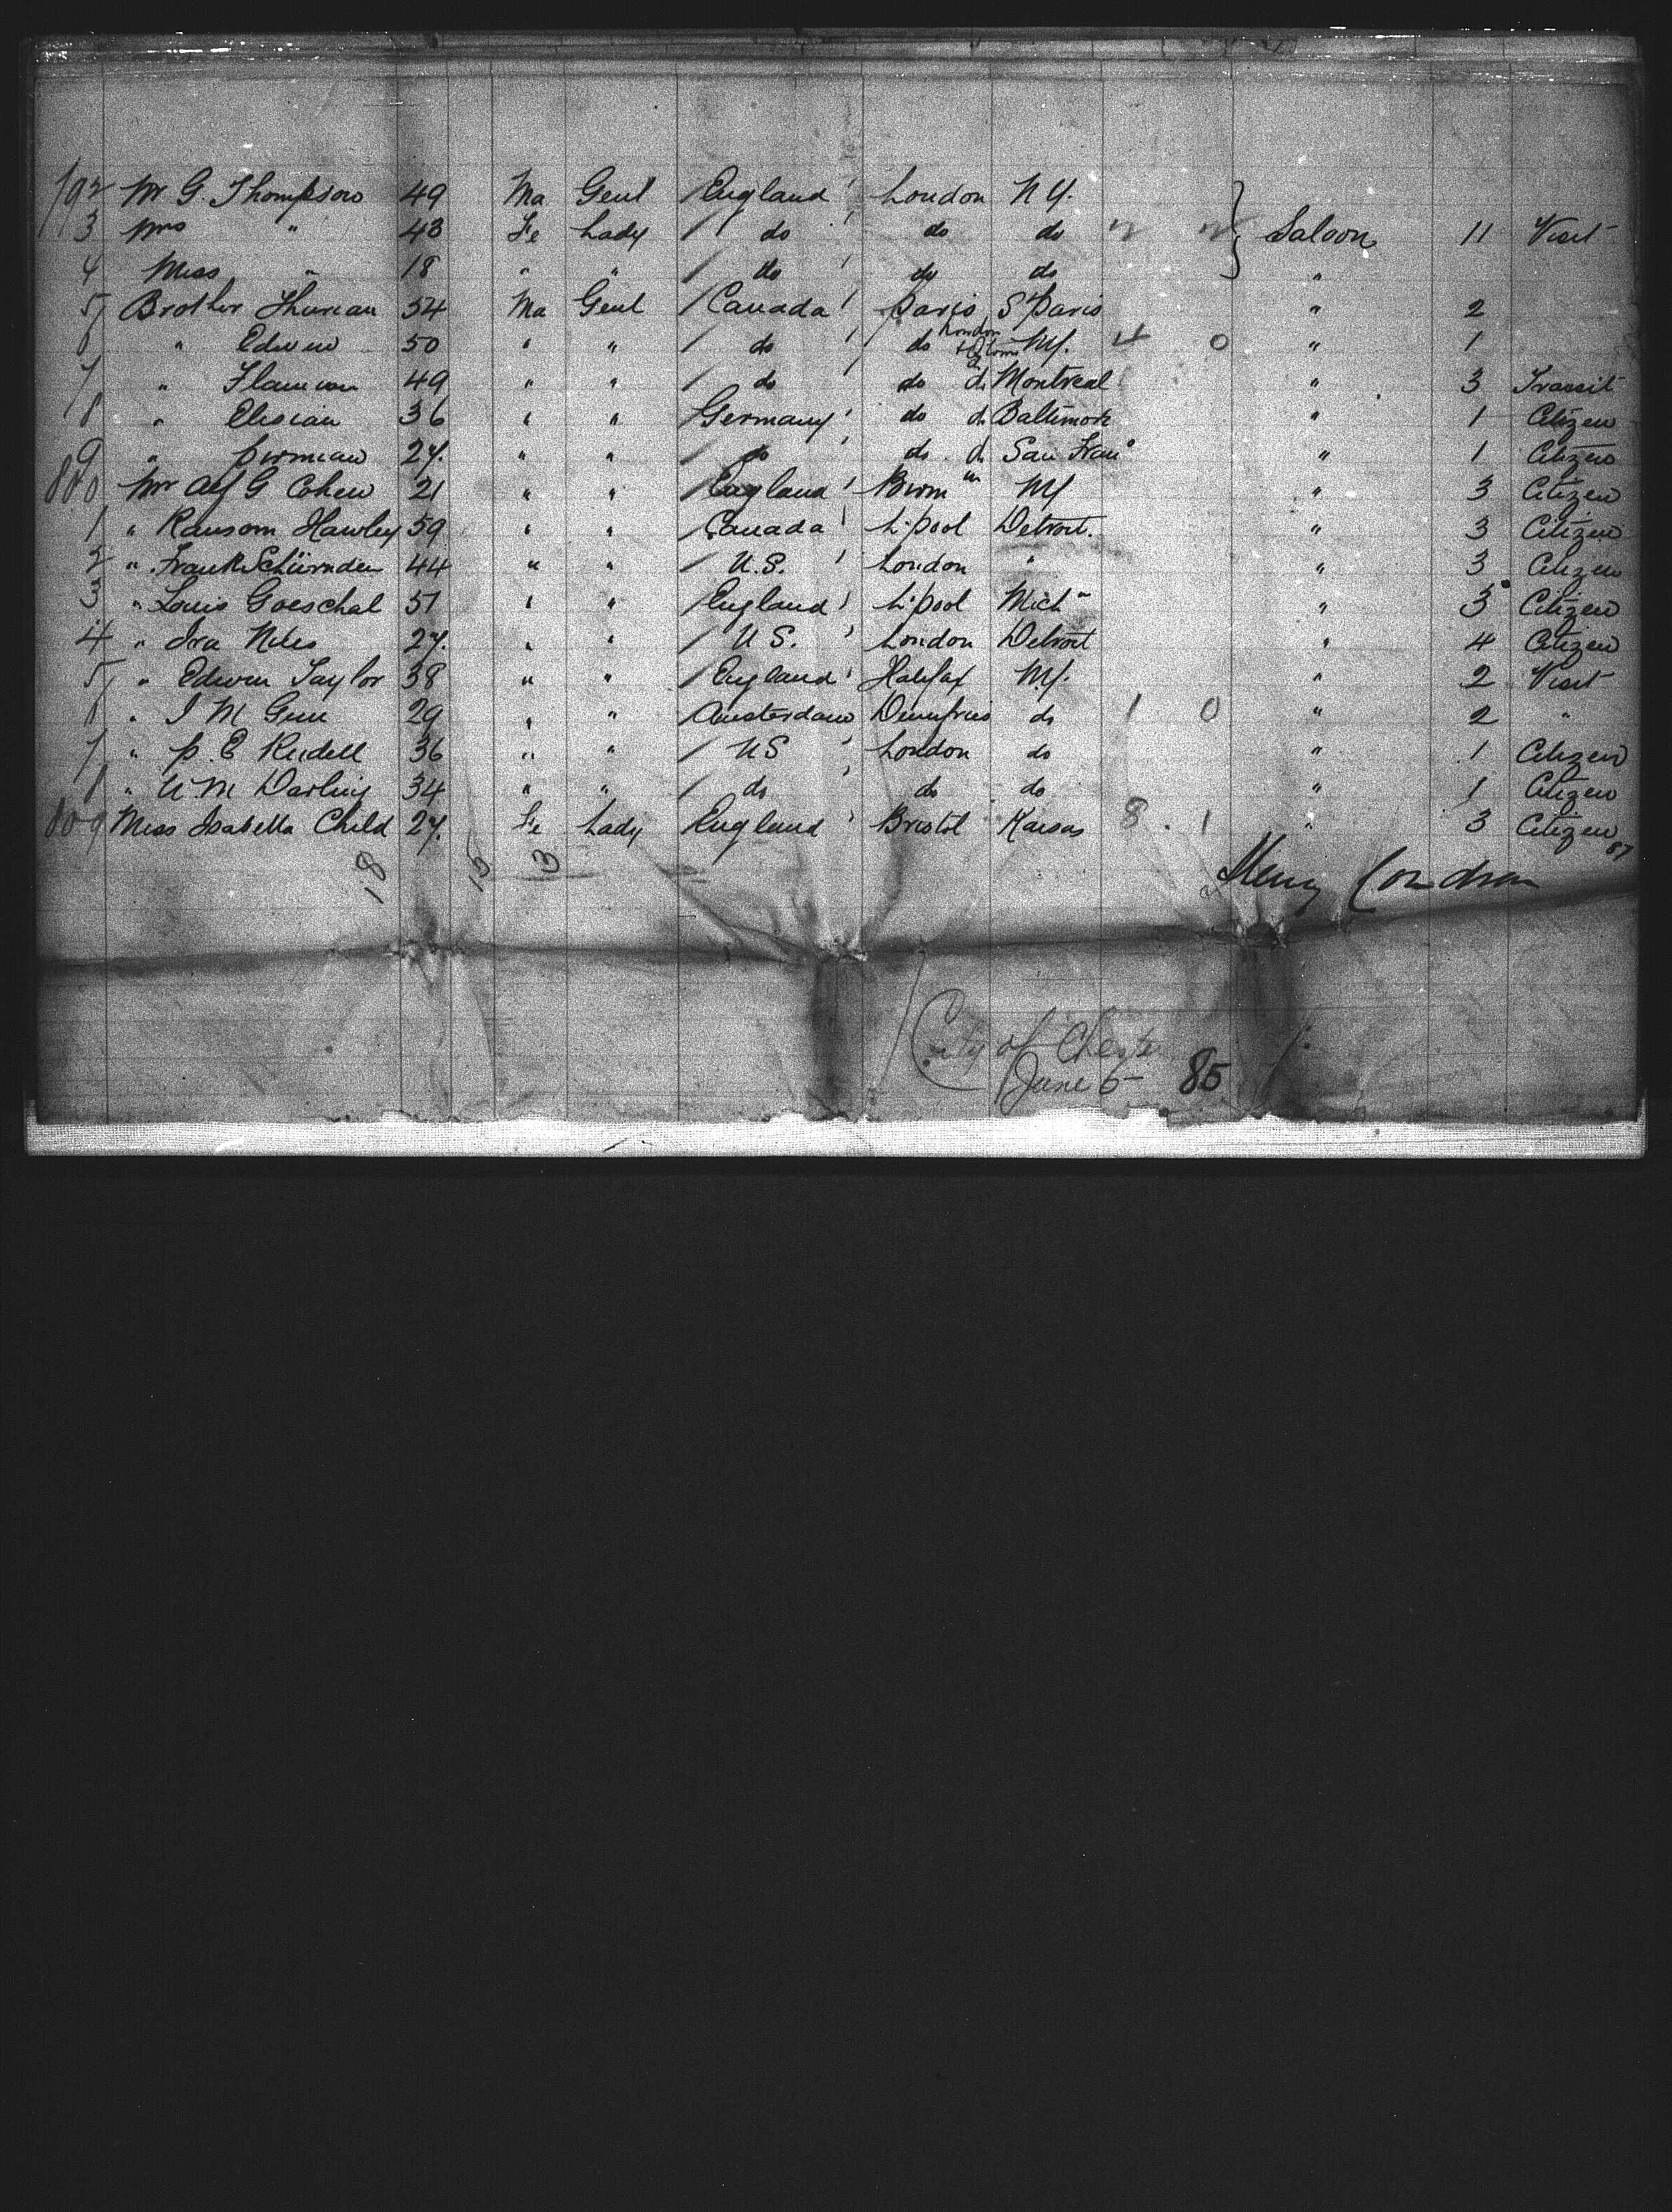 792 Mr G. Thompson 49 Ma Gent England London N Y.
3 Mrs " 43 Fe Lady do do do Saloon 11 Visit
4 Miss " 18 " " do do do "
5 Brother Thurian 54 Ma Gent Canada Paris S Paris " 2
6 " Edwin 50 " " do do London NY. 4 0 " 1
7 " 49 " " do do do Montreal " 3 Transit
8 " Elisian 36 " " Germany do do Baltimore " 1 Citizen
9 " Pirmian 27. " " do do do San Fran° " 1 Citizen
800 Mr Alf G Cohen 21 " " England Birm m NY " 3 Citizen
1 " Ransom Hawley 59 " " Canada L'pool Detroit. " 3 Citizen
2 " Frank 44 " " U.S. London " " 3 Citizen
3 " Louis Goeschal 51 " " England L'pool Mich " 3 Citizen
4 " Ira Niles 27. " " U S. London Detroit " 4 Citizen
5 " Edwin Taylor 38 " " England Halifax NY. " 2 Visit
6 " J M Gun 29 " " Amsterdam Dumfries do 1 0 " 2 "
7 " P. E Riddell 36 " " US London do " 1 Citizen
8 " U M Darling 34 " " do do do " 1 Citizen
809 Miss Isabella Child 27. Fe Lady England Bristol Kansas 8 . 1 " 3 Citizen
87
18 15 3
Henry Condron
City of Chester
June 5 85